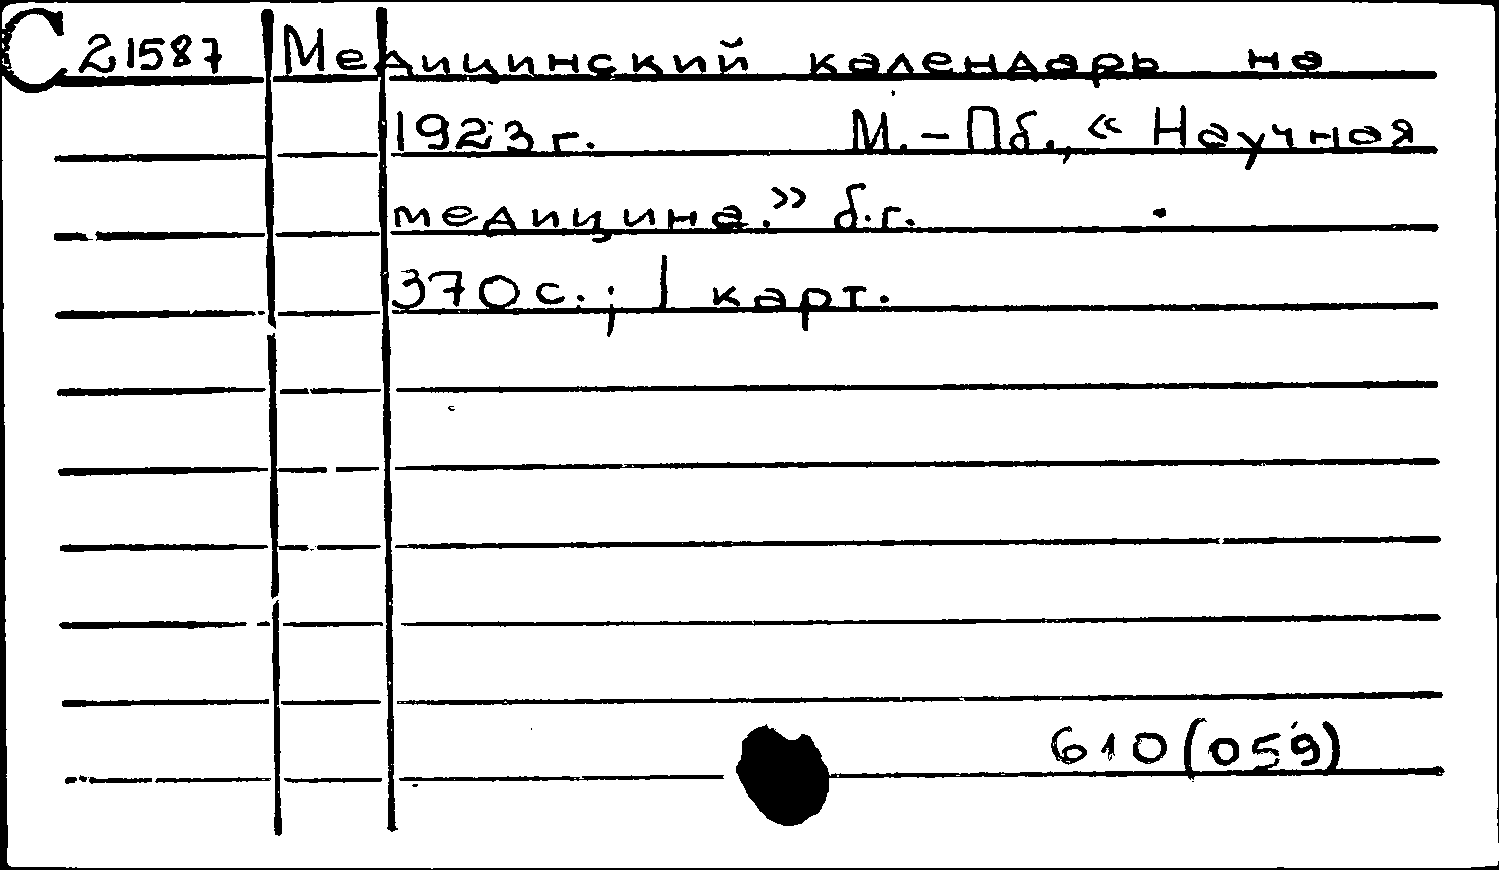 С 21587 Медицинский календарь на
1923 г. М.-Пб., « Научная
медицина.» б.г.
370 с.; 1 карт.
610(059)